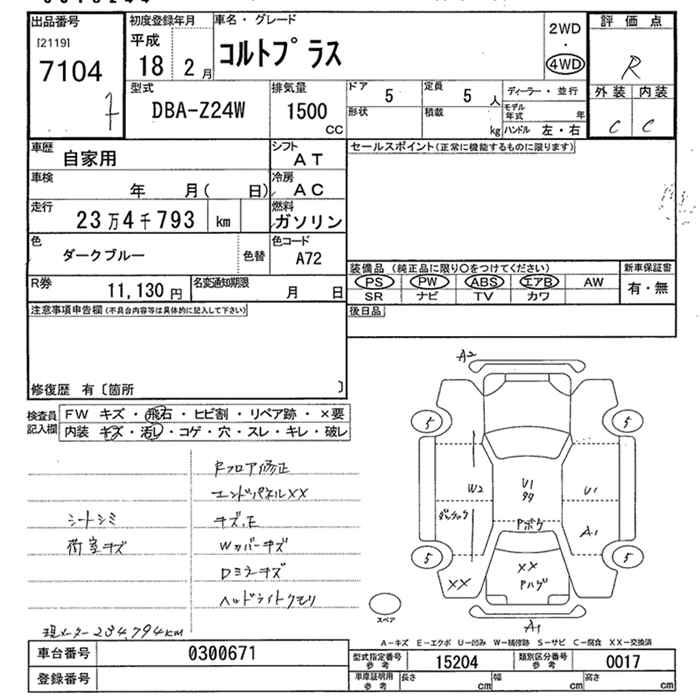 出品番号
[2119]
7104
初度登録年月
平成
18 2月
車名・グレード
コルトプラス
2WD
・
4WD
評価点
R
外装 内装
C C
型式
DBA-Z24W
排気量
1500
CC
ドア 5
定員 5 人
形状
積載 kg
ディーラー・並行
モデル年式 年
ハンドル 左・右
車歴 自家用
シフト AT
車検 年 月( 日)
冷房 AC
走行 23万4千793 km
燃料 ガソリン
色 ダークブルー 色替
色コード A72
R券 11,130円
名変通知期限 月 日
セールスポイント(正常に機能するものに限ります)
装備品 (純正品に限り○をつけてください)
PS PW ABS エアB AW
SR ナビ TV カワ
新車保証書
有・無
後日品
注意事項申告欄(不具合内容等は具体的に記入して下さい)
修復歴 有〔箇所 〕
検査員記入欄
FW キズ・飛石・ヒビ割・リペア跡・×要
内装 キズ・汚し・コゲ・穴・スレ・キレ・破レ
Rフロア修正
エンドパネルXX
シートシミ
荷室キズ
キズ,E
Wカバーキズ
Dミラーキズ
ヘッドライトクモリ
現メーター234,794km
A2
5 5
W2
U1
99
U1
Pボケ
A1
5 5
XX
XX
Pハゲ
A1
スペア
A－キズ E－エクボ U－凹み W－補修跡 S－サビ C－腐食 XX－交換済
車台番号 0300671
登録番号
型式指定番号 参考 15204
類別区分番号 参考 0017
車庫証明用 参考 長さ cm 幅 cm 高さ cm